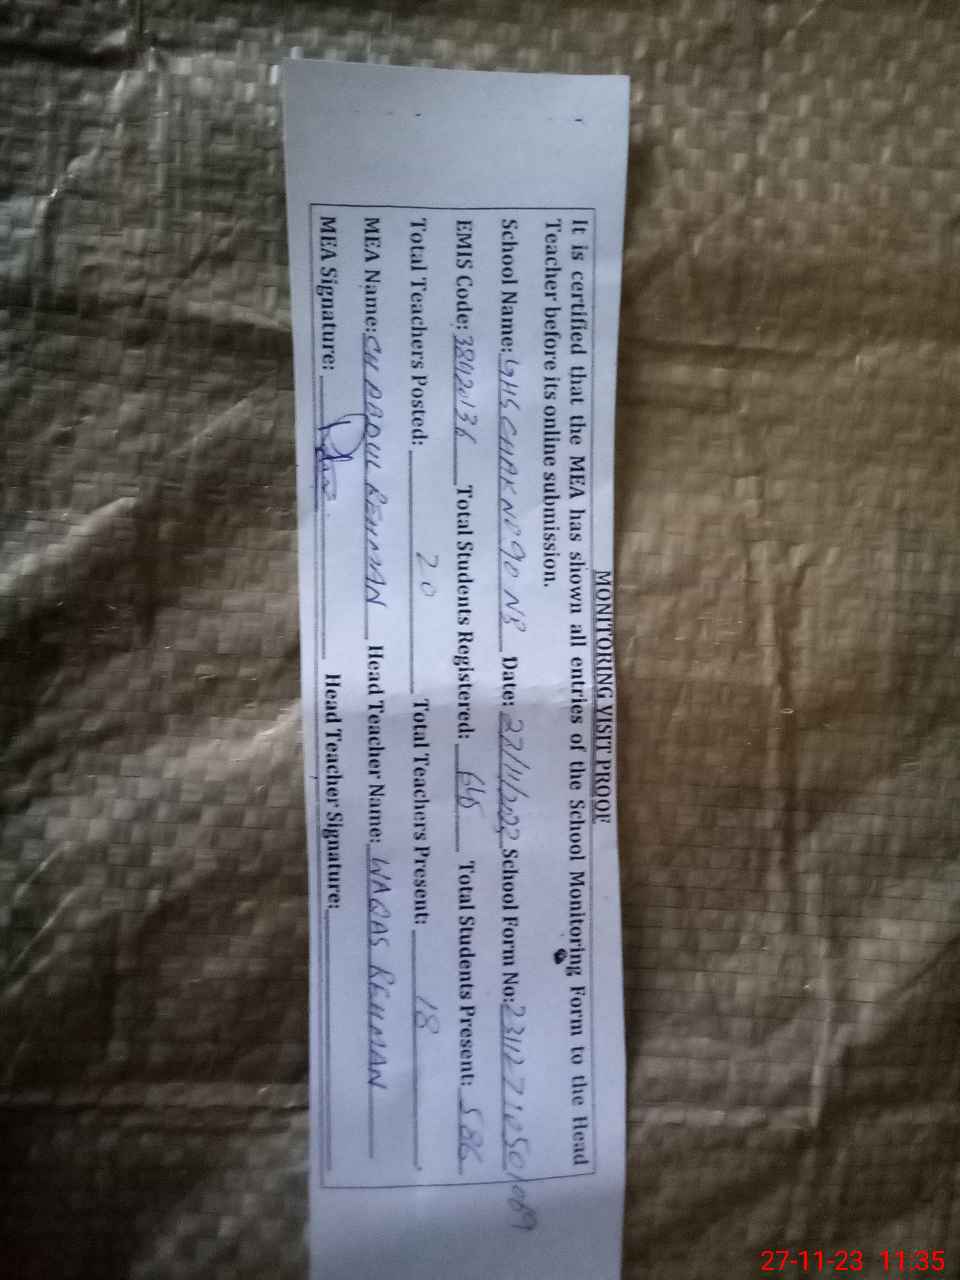 MONITORING VISIT PROOF
It is certified that the MEA has shown all entries of the School Monitoring Form to the Head
Teacher before its online submission.
School Name: GHS CHAK NO 90 NB Date: 27/11/2023 School Form No:
EMIS Code: 38420136 Total Students Registered: Total Students Present: 586
Total Teachers Posted: 20 Total Teachers Present: 18
MEA Name: CH ABDUL REHMAN Head Teacher Name: WAQAS REHMAN
MEA Signature: Head Teacher Signature:
27-11-23 11:35